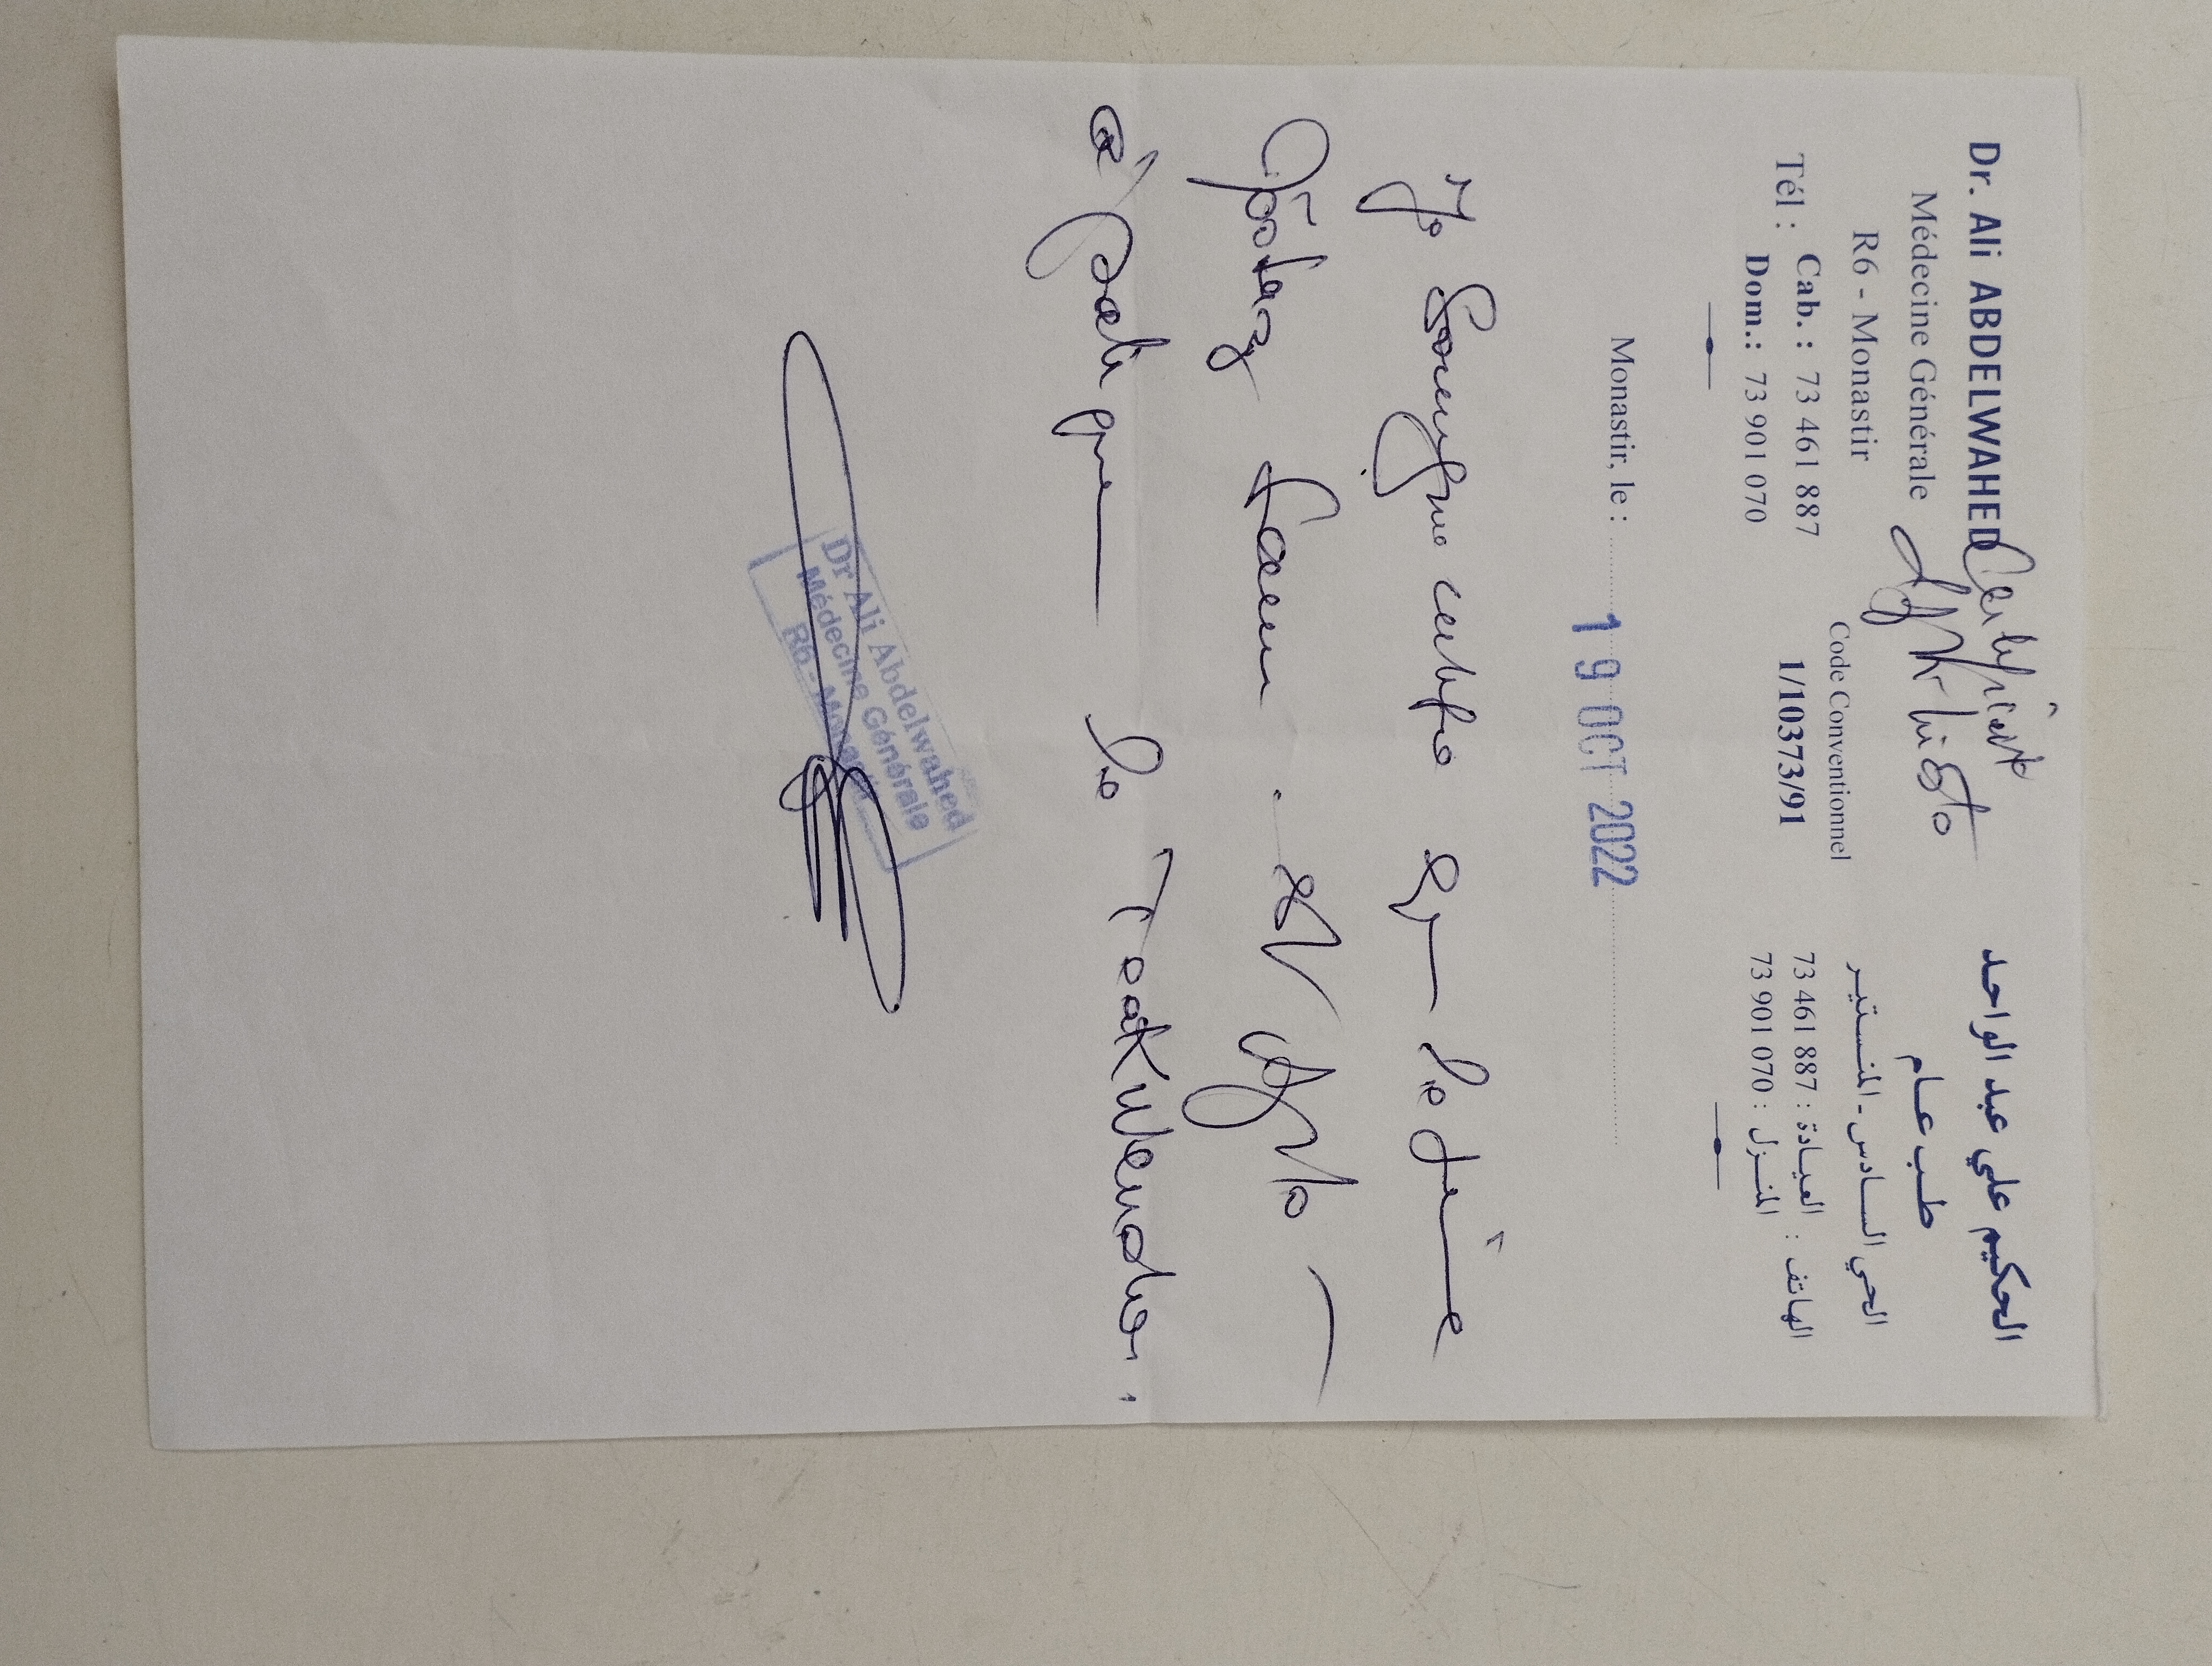 Dr. Ali ABDELWAHED
Médecine Générale
R6 - Monastir
Tél : Cab. : 73 461 887
Dom.: 73 901 070
Certificat
d'Aptitude
Code Conventionnel
1/10373/91
الحكيم علي عبد الواحد
طب عام
الحي السادس - المنستير
الهاتف : العيادة : 73 461 887
المنزل : 73 901 070
Monastir, le : 19 OCT 2022
Je Soussigné certifie que le
est apte
à pratiquer le Taekwendo.
Dr Ali Abdelwahed
Médecine Générale
R6 - Monastir